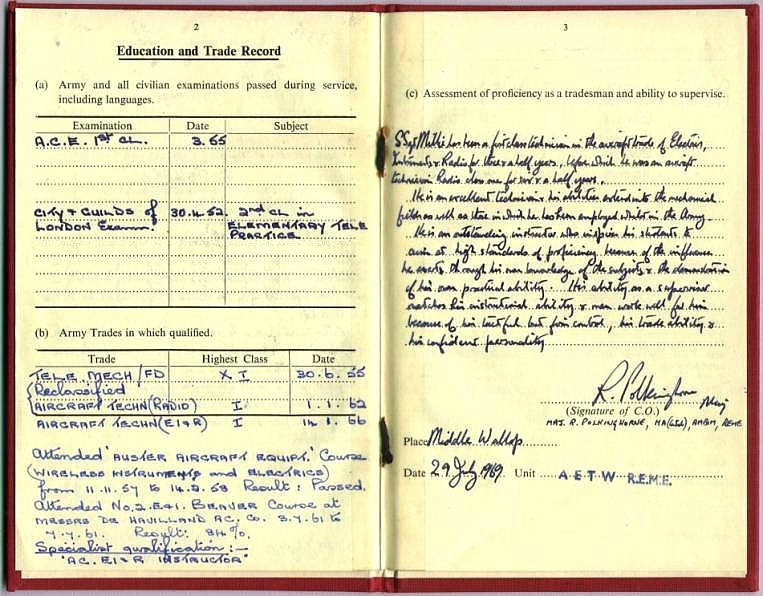 2
Education and Trade Record
(a) Army and all civilian examinations passed during service,
including languages.
Examination Date Subject
A.C.E. 1st CL. 3.55
CITY & GUILDS of 30.4.52 2nd CL in
LONDON Examn. ELEMENTARY TELE
PRACTICE
(b) Army Trades in which qualified.
Trade Highest Class Date
TELE MECH/FD X I 30.6.55
Reclassified
AIRCRAFT TECHN(RADIO) I 1.1.62
AIRCRAFT TECHN(EI&R) I 14.1.66
Attended 'AUSTER AIRCRAFT EQUIPT.' Course
(WIRELESS INSTRUMENTS and ELECTRICS)
from 11.11.57 to 14.2.58 Result: Passed.
Attended No.2.E&I. BEAVER Course at
MESSRS DE HAVILLAND AC. Co. 3.7.61 to
7.7.61. Result: 84%.
Specialist qualification:-
'AC. EI&R INSTRUCTOR'
3
(c) Assessment of proficiency as a tradesman and ability to supervise.
SSgt has been a first class technician in the aircraft trade of Electrics,
Instruments & Radio for three & a half years, before which he was an aircraft
technician Radio class one for & a half years.
He is an excellent technician & his abilities extend into the mechanical
fields as well as those in which he has been employed whilst in the Army.
He is an outstanding instructor who inspires his students to
aim at high standards of proficiency because of the influence
he exerts through his own knowledge of the subjects & the demonstration
of his own practical ability. His ability as a supervisor
matches his instructional ability & men work well for him
because of his tactful but firm control, his trade ability &
his confident personality
R. Polkinghorne Maj
(Signature of C.O.)
MAJ. R. POLKINGHORNE, MA, REME
Place Middle Wallop
Date 29 July 1969 Unit A E T W R.E.M.E.